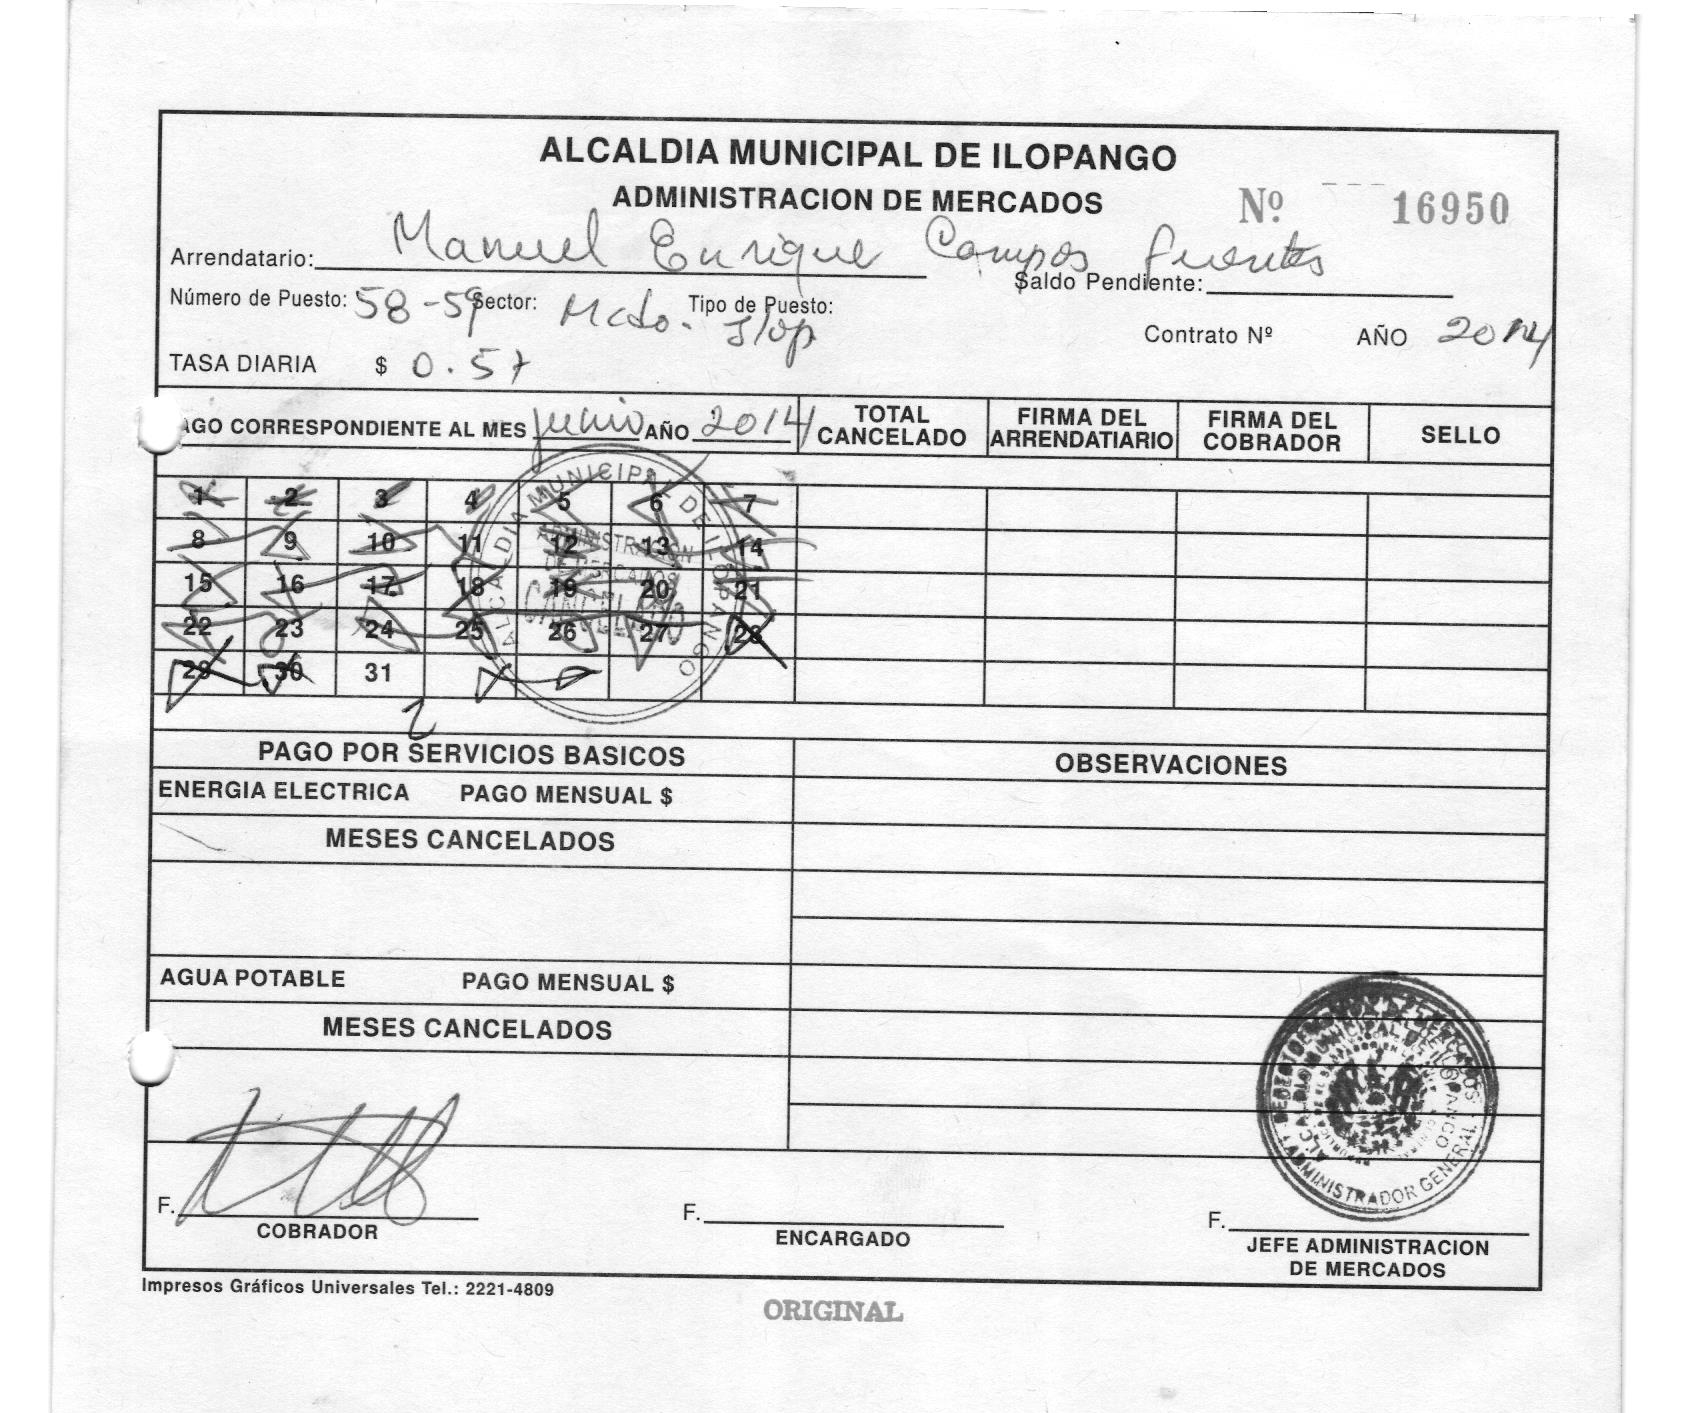 ALCALDIA MUNICIPAL DE ILOPANGO
ADMINISTRACION DE MERCADOS
Nº 16950
Arrendatario: Manuel Enrique Campos Fuentes
Saldo Pendiente:
Número de Puesto: 58-59 Sector: Mcdo. Ilop Tipo de Puesto:
Contrato Nº AÑO 2014
TASA DIARIA $ 0.57
AGO CORRESPONDIENTE AL MES junio AÑO 2014 TOTAL CANCELADO FIRMA DEL ARRENDATIARIO FIRMA DEL COBRADOR SELLO
1 2 3 4 5 6 7
8 9 10 11 12 13 14
15 16 17 18 19 20 21
22 23 24 25 26 27 28
29 30 31
ALCALDIA MUNICIPAL DE ILOPANGO
ADMINISTRACION
DE MERCADOS
CANCELADO
PAGO POR SERVICIOS BASICOS OBSERVACIONES
ENERGIA ELECTRICA PAGO MENSUAL $
MESES CANCELADOS
AGUA POTABLE PAGO MENSUAL $
MESES CANCELADOS
ADMINISTRADOR GENERAL
F. COBRADOR
F. ENCARGADO
F. JEFE ADMINISTRACION
DE MERCADOS
Impresos Gráficos Universales Tel.: 2221-4809
ORIGINAL